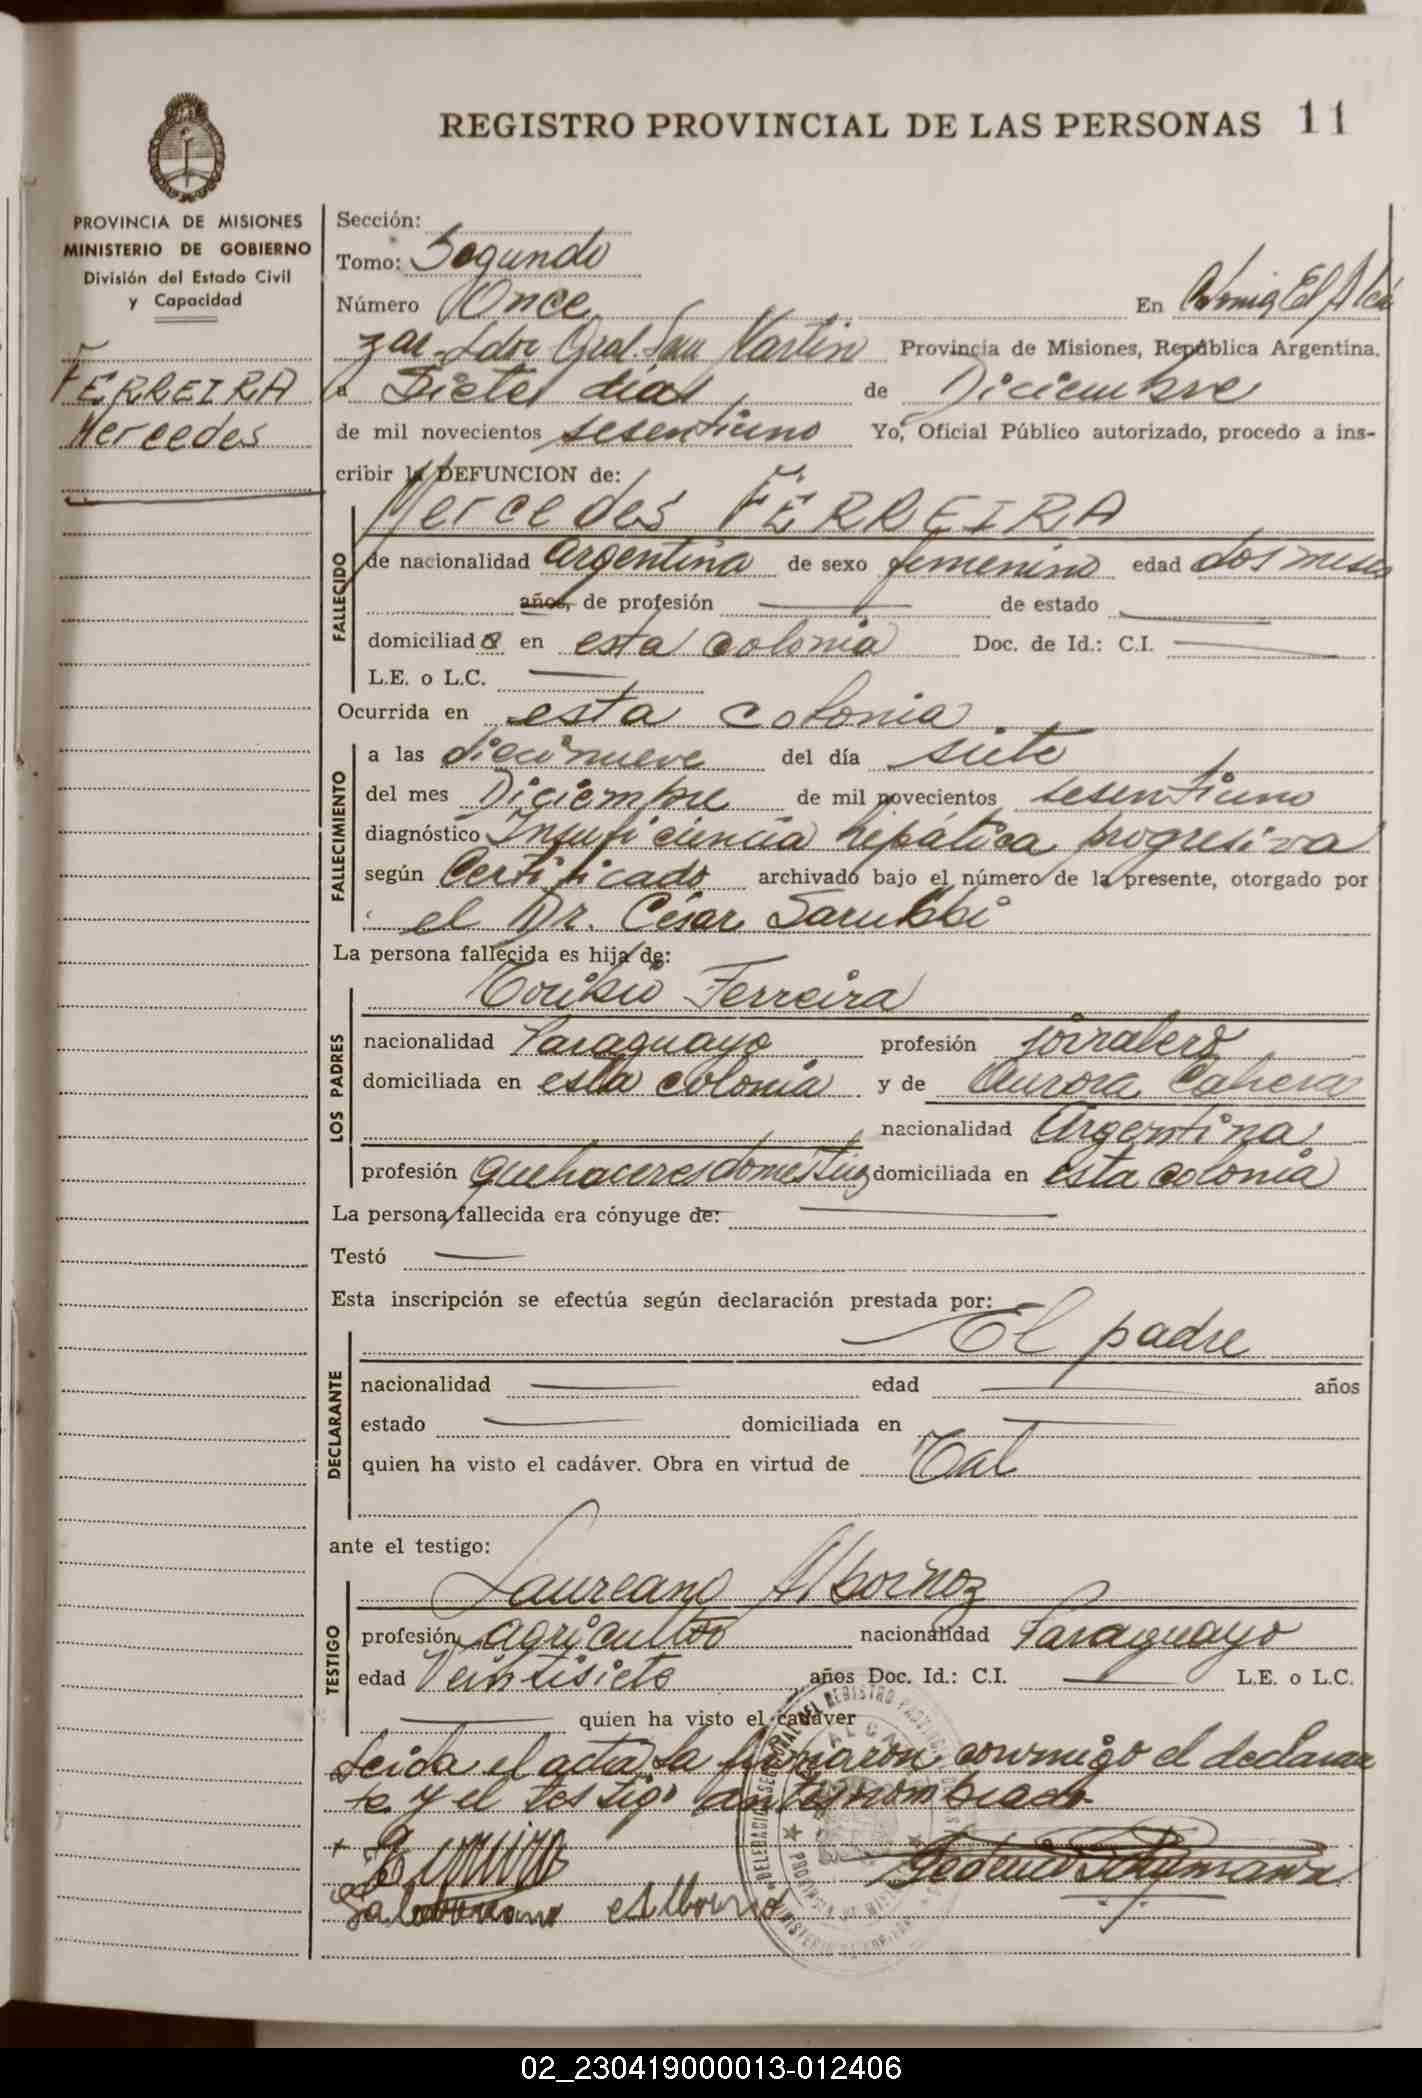 REGISTRO PROVINCIAL DE LAS PERSONAS 11
PROVINCIA DE MISIONES
MINISTERIO DE GOBIERNO
División del Estado Civil
y Capacidad
FERREIRA
Mercedes
Sección:
Tomo: Segundo
Número Once En Colonia El Alcá
zar Ldor Gral. San Martín Provincia de Misiones, República Argentina.
a Siete días de Diciembre
de mil novecientos sesentiuno Yo, Oficial Público autorizado, procedo a ins-
cribir la DEFUNCION de:
Mercedes FERREIRA
FALLECIDO
de nacionalidad Argentina de sexo femenino edad dos meses
años, de profesión — de estado —
domiciliada en esta colonia Doc. de Id.: C.I. —
L.E. o L.C. —
Ocurrida en esta colonia
FALLECIMIENTO
a las diecinueve del día siete
del mes Diciembre de mil novecientos sesentiuno
diagnóstico Insuficiencia hepática progresiva
según Certificado archivado bajo el número de la presente, otorgado por
el Dr. César Sarubbi
La persona fallecida es hija de:
Toribio Ferreira
LOS PADRES
nacionalidad Paraguayo profesión jornalero
domiciliada en esta colonia y de Aurora Cabrera
nacionalidad Argentina
profesión quehaceres domesticos domiciliada en esta colonia
La persona fallecida era cónyuge de: —
Testó —
Esta inscripción se efectúa según declaración prestada por:
El padre
DECLARANTE
nacionalidad — edad — años
estado — domiciliada en —
quien ha visto el cadáver. Obra en virtud de Tal
ante el testigo:
Laureano Albornoz
TESTIGO
profesión agricultor nacionalidad Paraguayo
edad Veintisiete años Doc. Id.: C.I. — L.E. o L.C.
— quien ha visto el cadáver
Leida el acta la firmaron conmigo el declaran
te y el testigo antenombrado
02_230419000013-012406